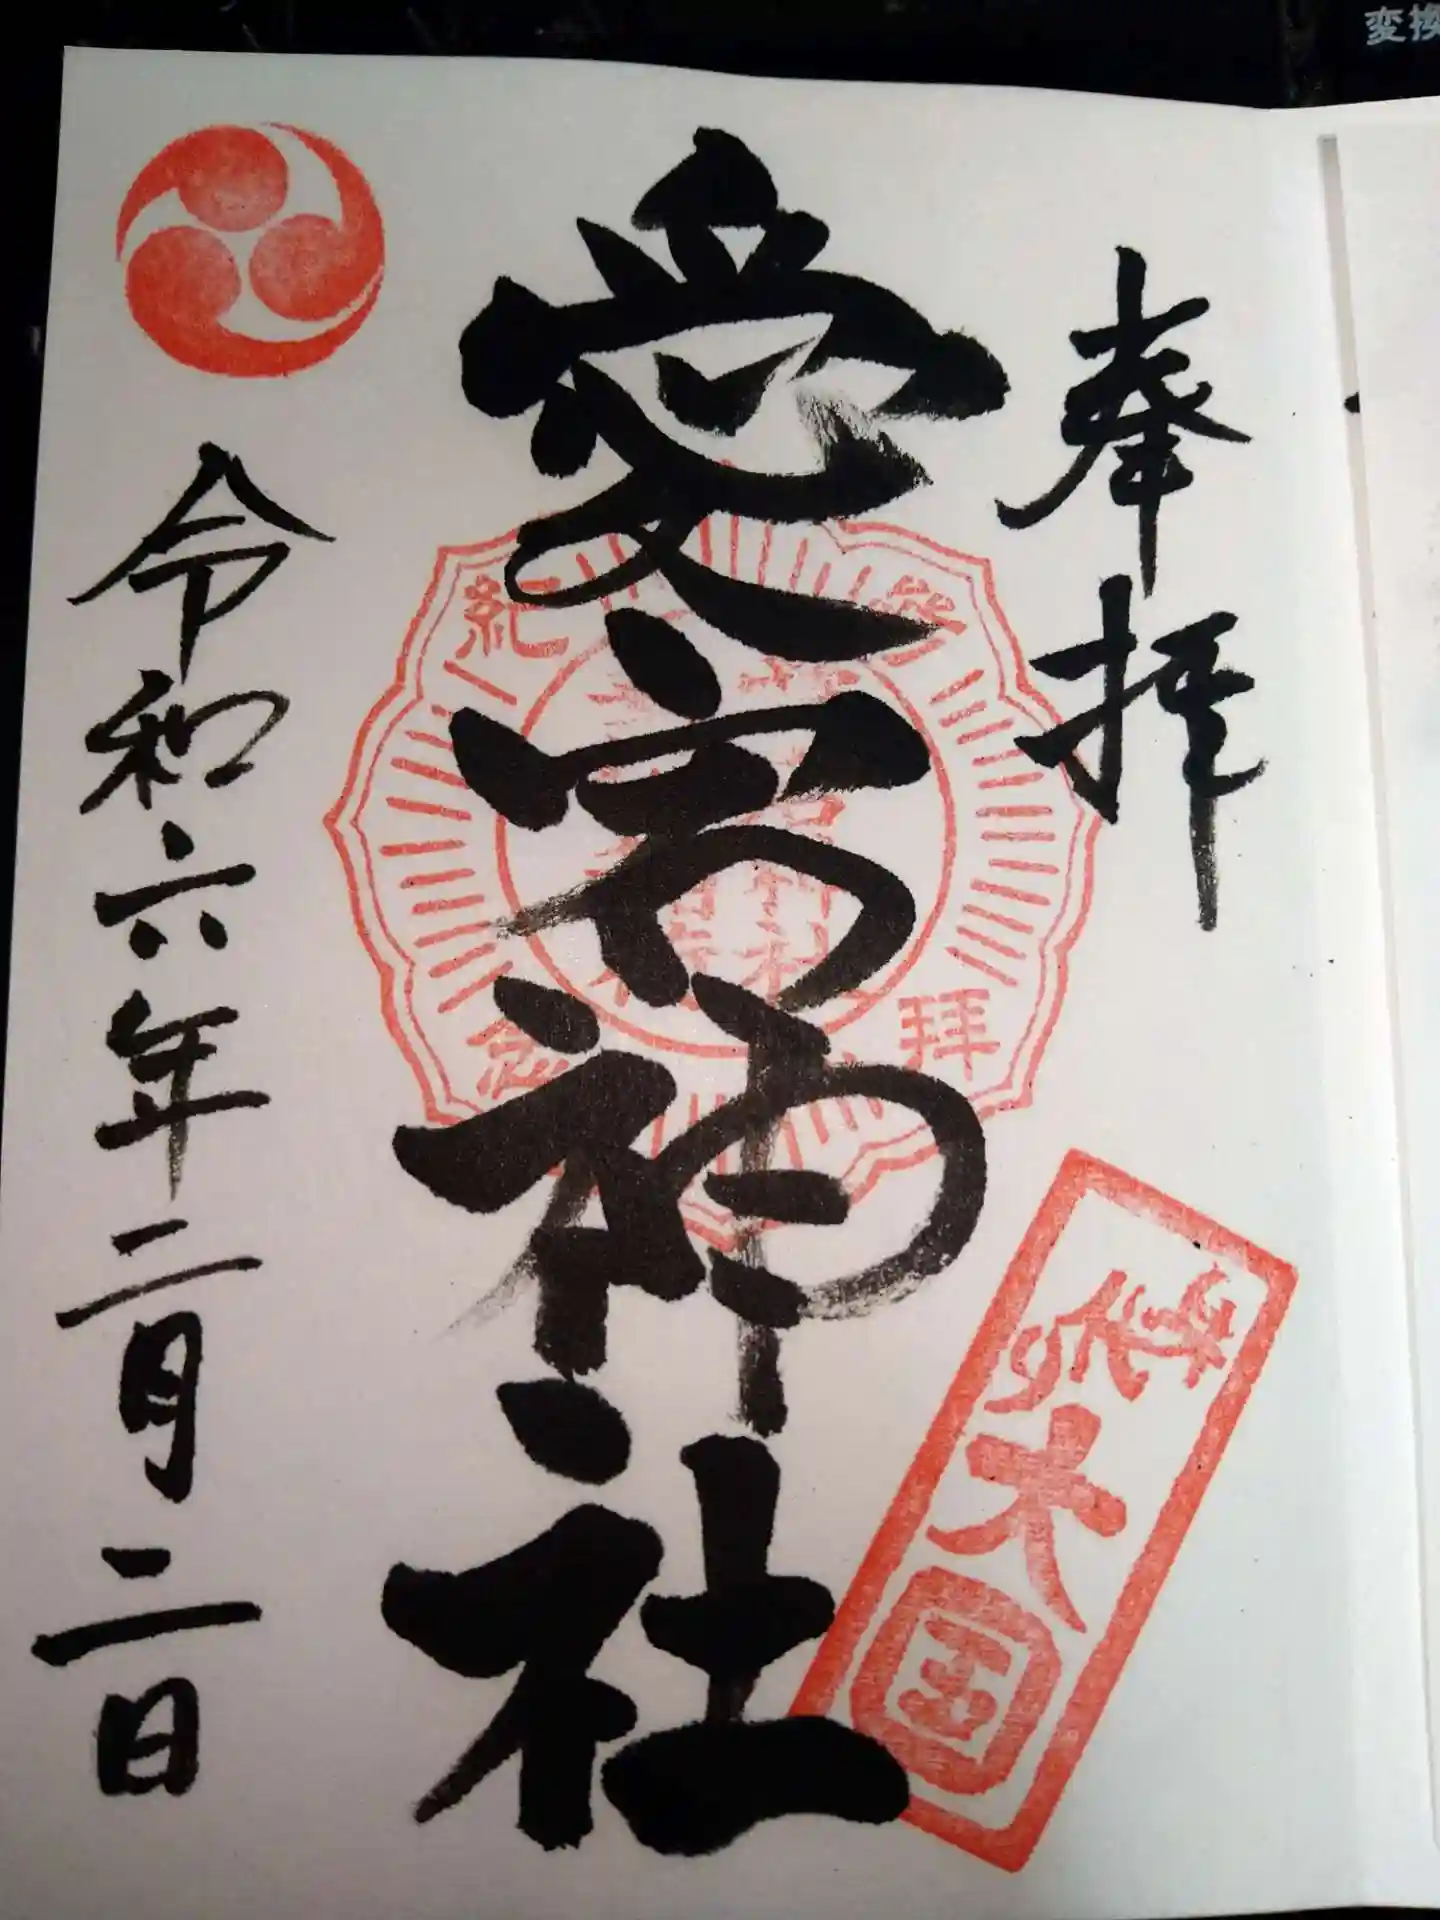 変換
奉拝
愛宕神社
令和六年三月二日
参拝
紀念
大国